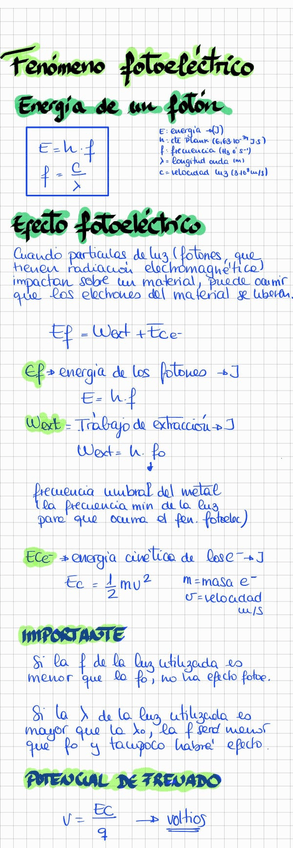 Fenómeno fotoeléctrico
Energía de un fotón
E = h · f
f = c/λ
E: energía → (J)
h: cte Plank (6,63·10⁻³⁴ J·s)
f: frecuencia (Hz ó s⁻¹)
λ = longitud onda (m)
c = velocidad luz (3·10⁸ m/s)
Efecto fotoeléctrico
Cuando partículas de luz (fotones, que
tienen radiación electromagnética)
impactan sobre un material, puede ocurrir
que los electrones del material se liberen.
Ef = Wext + Ece-
Ef → energía de los fotones → J
E = h · f
Wext = Trabajo de extracción → J
Wext = h · fo
↓
frecuencia umbral del metal
(la frecuencia min de la luz
para que ocurra el fen. fotoelec)
Ece- → energía cinética de los e⁻ → J
Ec = 1/2 mv²
m = masa e⁻
v = velocidad
m/s
IMPORTANTE
Si la f de la luz utilizada es
menor que la fo, no ha efecto fotoe.
Si la λ de la luz utilizada es
mayor que la λo, la f será menor
que fo y tampoco habrá efecto.
POTENCIAL DE FRENADO
V = Ec/q → voltios